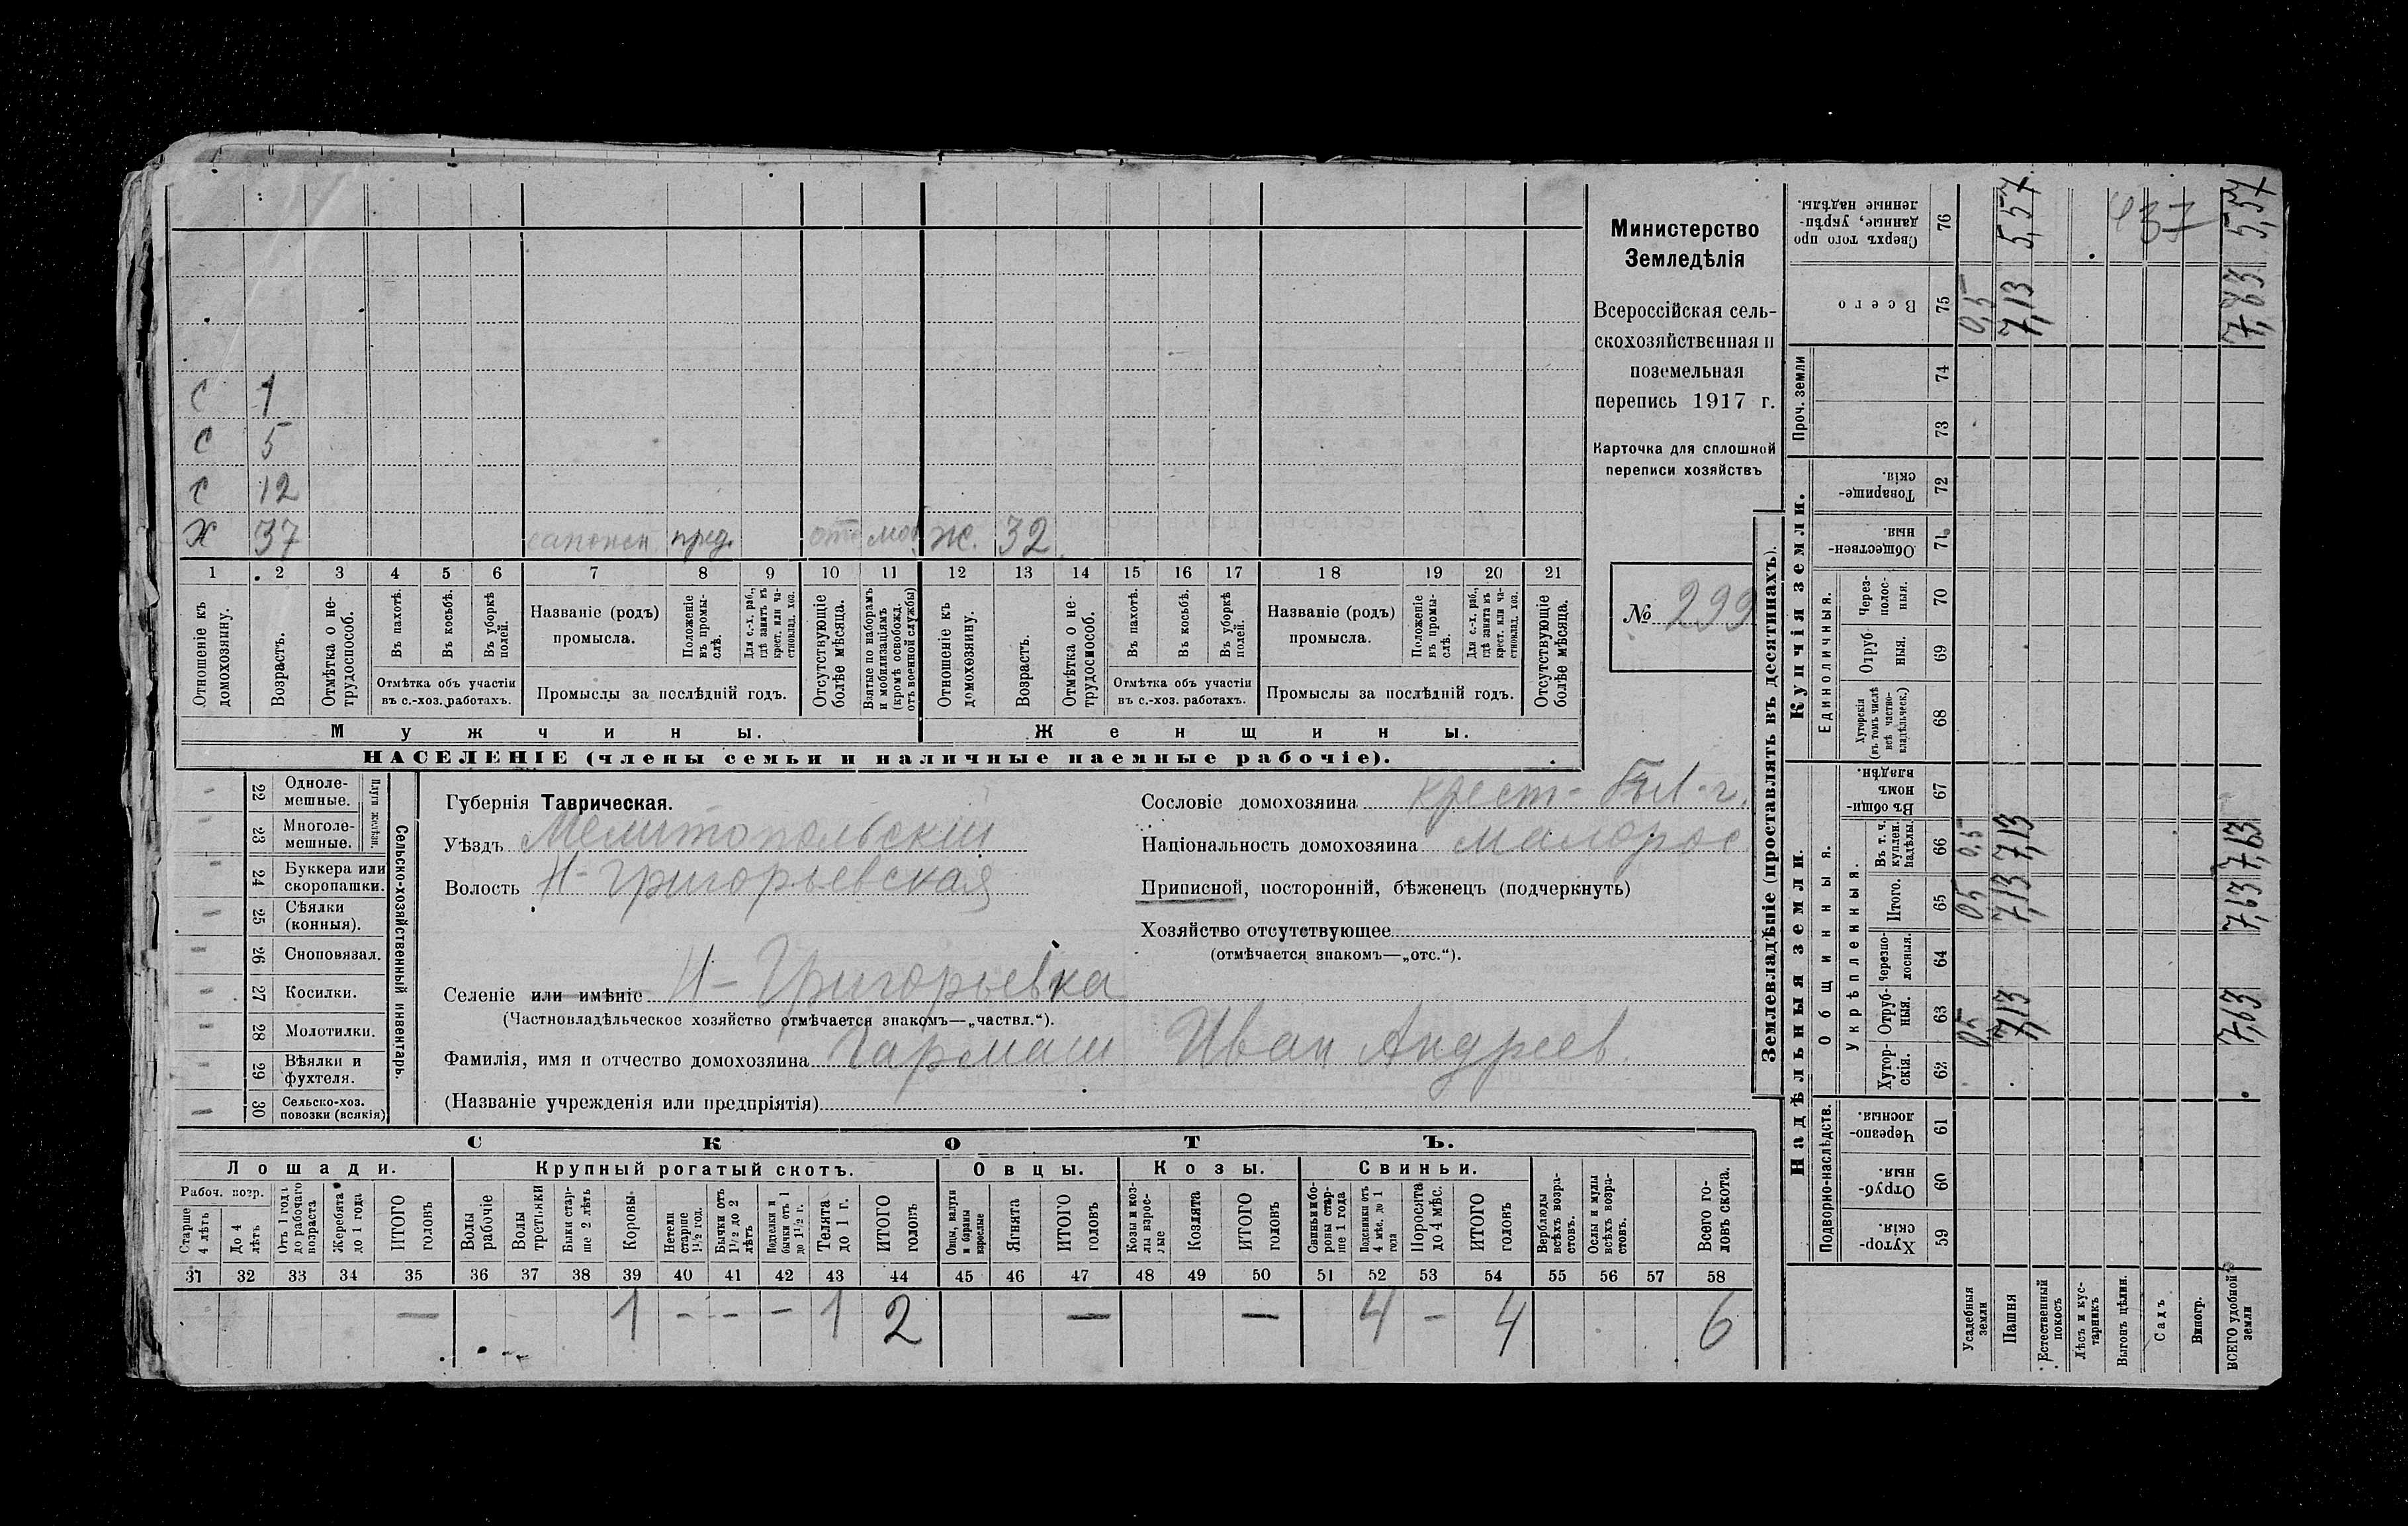 С 1
С 5
С 12
Х 37 сапожн. пред. отс моб ж. 32
1 2 3 4 5 6 7 8 9 10 11 12 13 14 15 16 17 18 19 20 21
Отношеніе къ домохозяину.
Возрастъ.
Отмѣтка о нетрудоспособ.
Въ пахотѣ.
Въ косьбѣ.
Въ уборкѣ полей.
Отмѣтка объ участіи въ с.-хоз. работахъ.
Названіе (родъ) промысла.
Положеніе въ промыслѣ.
Для с.-х. раб., гдѣ занятъ въ крест. или частновлад. хоз.
Промыслы за послѣдній годъ.
Отсутствующіе болѣе мѣсяца.
Взятые по наборамъ и мобилизаціямъ (кромѣ освобожд. отъ военной службы)
Отношеніе къ домохозяину.
Возрастъ.
Отмѣтка о нетрудоспособ.
Въ пахотѣ.
Въ косьбѣ.
Въ уборкѣ полей.
Отмѣтка объ участіи въ с.-хоз. работахъ.
Названіе (родъ) промысла.
Положеніе въ промыслѣ.
Для с.-х. раб., гдѣ занята въ крест. или частновлад. хоз.
Промыслы за послѣдній годъ.
Отсутствующіе болѣе мѣсяца.
Мужчины. Женщины.
НАСЕЛЕНІЕ (члены семьи и наличные наемные рабочіе).
Министерство
Земледѣлія
Всероссійская сель-
скохозяйственная и
поземельная
перепись 1917 г.
Карточка для сплошной
переписи хозяйствъ
№ 299
Сельско-хозяйственный инвентарь.
Плуги желѣзн.
22 Одноле-
мешные.
23 Многоле-
мешные.
24 Буккера или
скоропашки.
25 Сѣялки
(конныя).
26 Сноповязал.
27 Косилки.
28 Молотилки.
29 Вѣялки и
фухтеля.
30 Сельско-хоз.
повозки (всякія)
Губернія Таврическая.
Уѣздъ Мелитопольскій
Волость Н-Григорьевская
Сословіе домохозяина крест-
Національность домохозяина малорос
Приписной, посторонній, бѣженецъ (подчеркнуть)
Хозяйство отсутствующее
(отмѣчается знакомъ—„отс.“).
Селеніе или имѣніе Н-Григорьевка
(Частновладѣльческое хозяйство отмѣчается знакомъ—„частвл.“).
Фамилія, имя и отчество домохозяина Гармаш Иван Андреев.
(Названіе учрежденія или предпріятія)
СКОТЪ.
Лошади. Крупный рогатый скотъ. Овцы. Козы. Свиньи.
Рабоч. возр.
Старше 4 лѣтъ
До 4 лѣтъ
Отъ 1 года до рабочаго возраста
Жеребята до 1 года
ИТОГО головъ
Волы рабочіе
Волы третьяки
Быки старше 2 лѣтъ
Коровы
Нетели старше 1 1/2 год.
Бычки отъ 1 1/2 до 2 лѣтъ
Подтелки и бычки отъ 1 до 1 1/2 г.
Телята до 1 г.
ИТОГО головъ
Овцы, валухи и бараны взрослые
Ягнята
ИТОГО головъ
Козы и козлы взрослые
Козлята
ИТОГО головъ
Свиньи и боровы старше 1 года
Подсвинки отъ 4 мѣс. до 1 года
Поросята до 4 мѣс.
ИТОГО головъ
Верблюды всѣхъ возрастовъ.
Ослы и мулы всѣхъ возрастовъ.
Всего головъ скота.
31 32 33 34 35 36 37 38 39 40 41 42 43 44 45 46 47 48 49 50 51 52 53 54 55 56 57 58
— 1 - - - 1 2 — — 4 - 4 6
Землевладѣніе (проставлять въ десятинахъ).
Надѣльныя земли. Купчія земли. Проч. земли
Подворно-наслѣдств. Общинныя. Единоличныя.
Укрѣпленныя.
59 Хуторскія.
60 Отрубныя.
61 Черезполосныя.
62 Хуторскія.
63 Отрубныя.
64 Черезполосныя.
65 Итого.
66 Въ т. ч. куплен. надѣлы.
67 Въ общинномъ владѣн.
68 Хуторскія (въ томъ числѣ всѣ частновладѣльческ.)
69 Отрубныя.
70 Черезполосныя.
71 Общественныя.
72 Товарищескія.
73
74
75 Всего
76 Сверхъ того проданные, укрѣпленные надѣлы.
Усадебныя земли 0,5 0,5 0,5 0,5
Пашня 7,13 7,13 7,13 7,13 5,57
Естественный покосъ
Лѣсъ и кустарникъ
Выгонъ цѣлин. 437
Садъ
Виногр.
ВСЕГО удобной земли 7,63 7,63 7,63 7,63 5,57